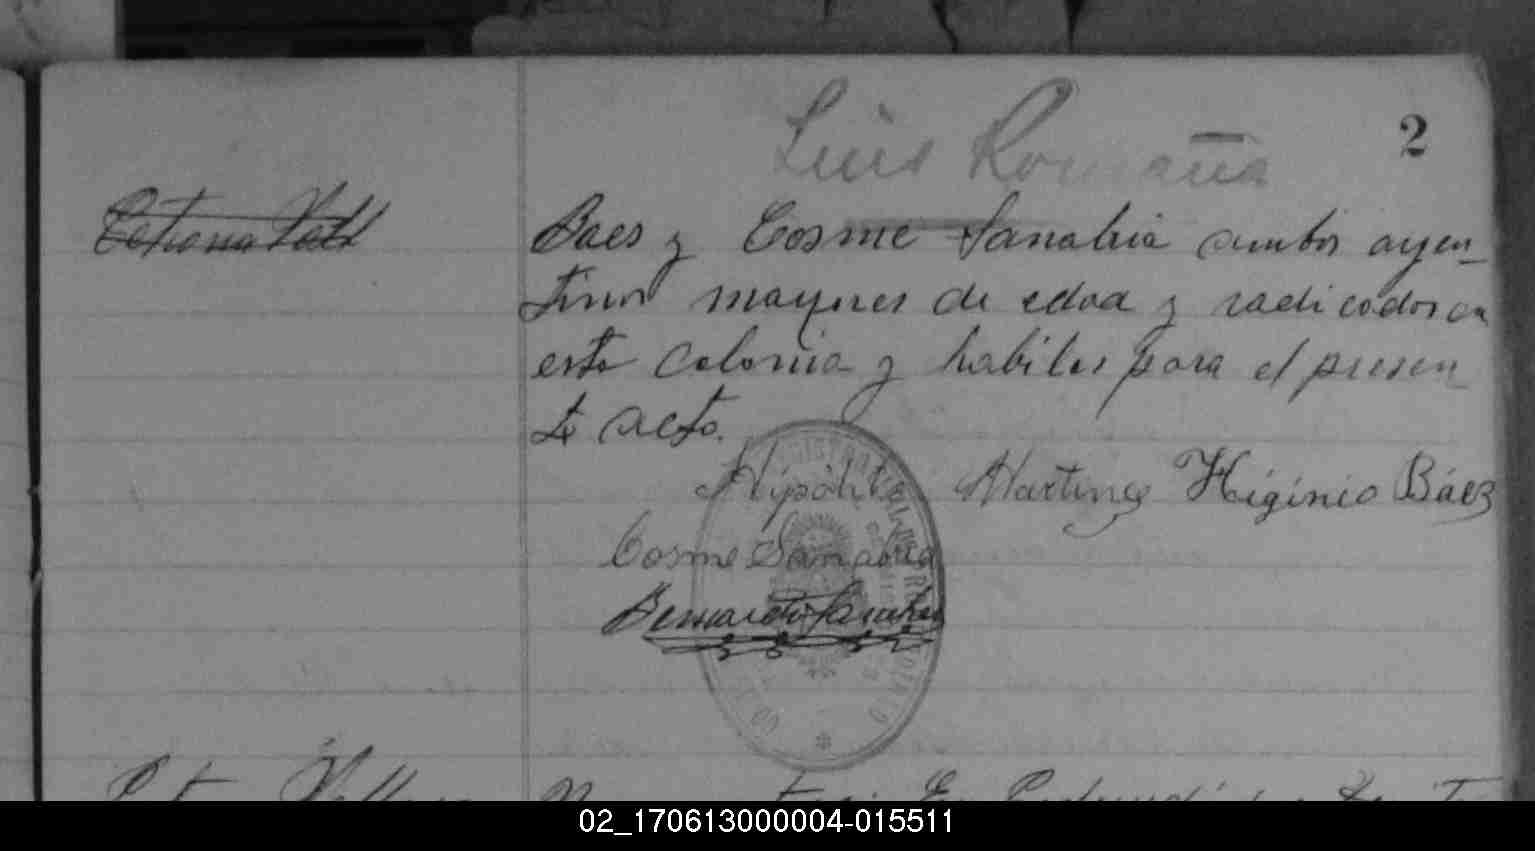 Luis Romaña
2
Baes y Cosme Sanabria ambos argen_
tinos mayores de edad y radicados en
esta colonia y habiles para el presen_
te acto.
Hipólito Martinez Higinio Báez
Cosme Sanabria
Bernardo Sanchez
02_170613000004-015511